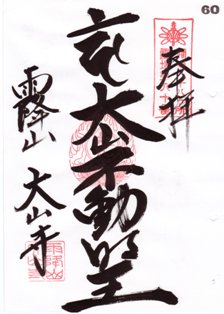 60
奉拝
大山不動明王
雨降山 大山寺